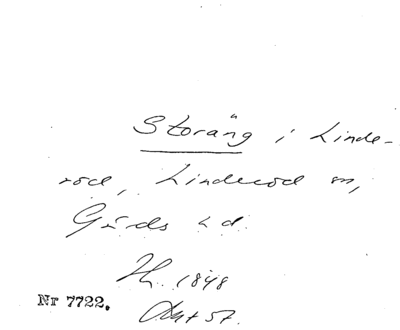 Storäng i Linde-
röd, Linderöd sn,
Gärds hd.
1848
Nr 7722.